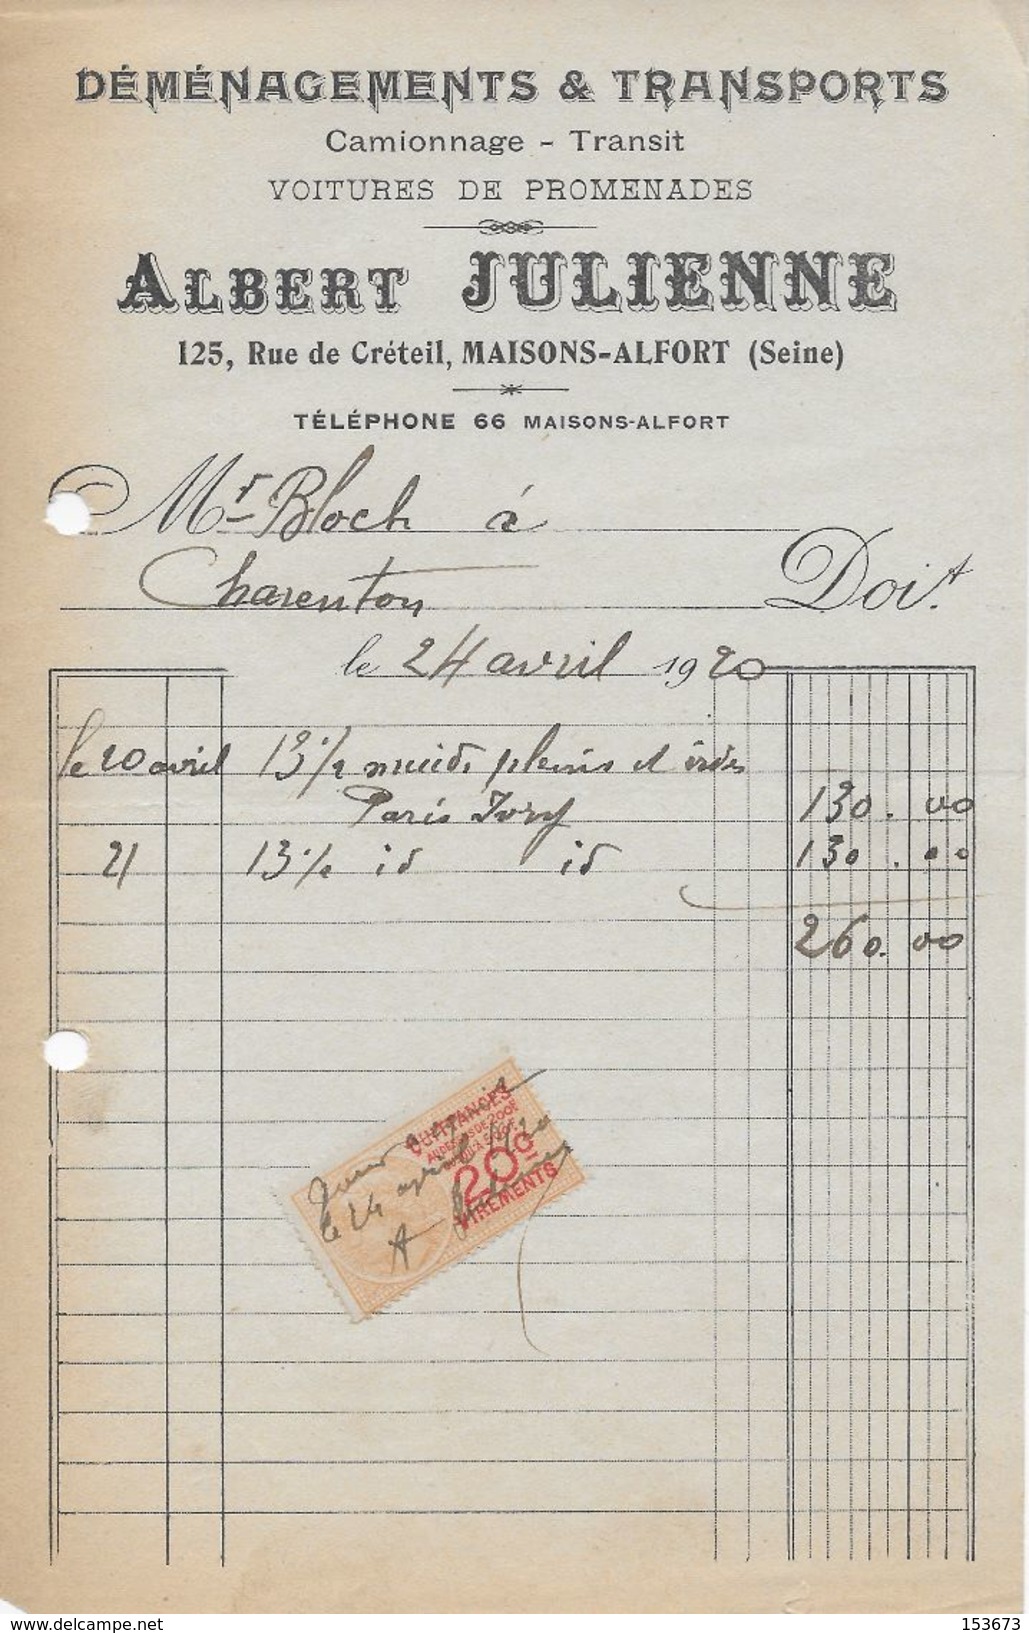 DÉMÉNAGEMENTS & TRANSPORTS
Camionnage - Transit
VOITURES DE PROMENADES
ALBERT JULIENNE
125, Rue de Créteil, MAISONS-ALFORT (Seine)
TÉLÉPHONE 66 MAISONS-ALFORT
Mr Bloch à
Charenton Doit
le 24 avril 1920
le 20 avril 13 1/2 muids pleins et vides
Paris Ivry 130.00
21 13 1/2 id id 130.00
260.00
QUITTANCES
AU DESSUS DE 200F
20c
VIREMENTS
Pour acquit
le 24 avril 1920
A Julienne
153673
delcampe.net